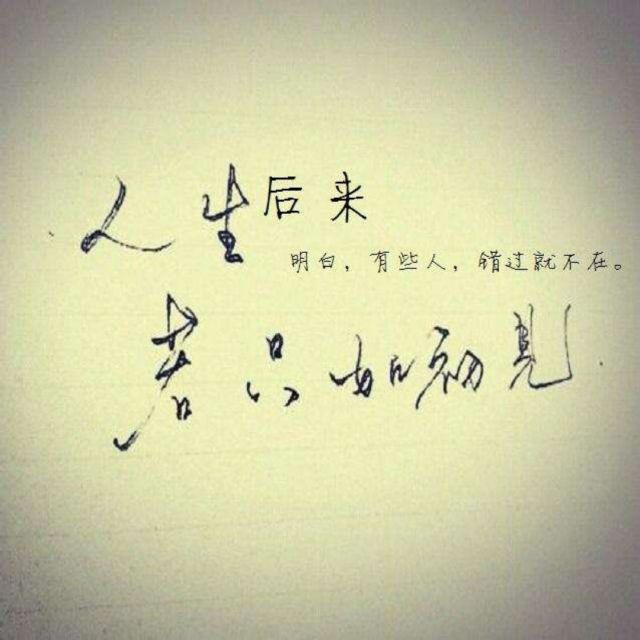 人生
后来
明白，有些人，错过就不在。
若只如初見